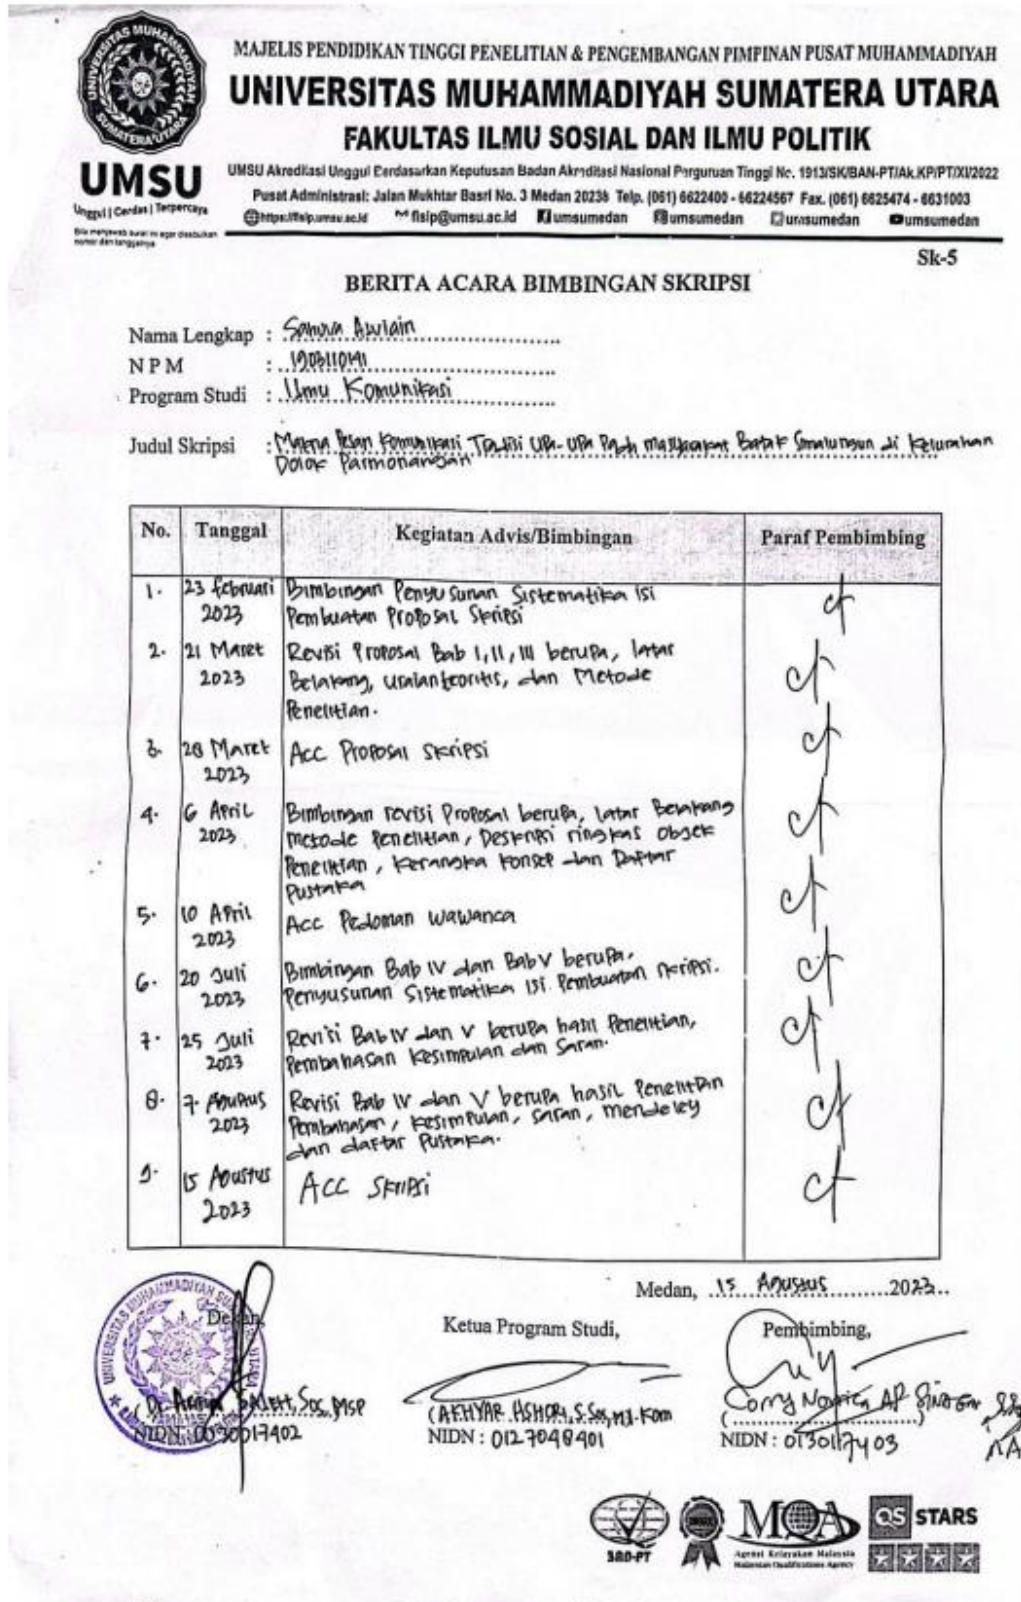 MAJELIS PENDIDIKAN TINGGI PENELITIAN & PENGEMBANGAN PIMPINAN PUSAT MUHAMMADIYAH
UNIVERSITAS MUHAMMADIYAH SUMATERA UTARA
FAKULTAS ILMU SOSIAL DAN ILMU POLITIK
UMSU
Unggul | Cerdas | Terpercaya
Bila menjawab surat ini agar disebutkan
nomor dan tanggalnya
UMSU Akreditasi Unggul Berdasarkan Keputusan Badan Akreditasi Nasional Perguruan Tinggi No. 1913/SK/BAN-PT/Ak.KP/PT/XI/2022
Pusat Administrasi: Jalan Mukhtar Basri No. 3 Medan 20238 Telp. (061) 6622400 - 66224567 Fax. (061) 6625474 - 6631003
https://fisip.umsu.ac.id fisip@umsu.ac.id umsumedan umsumedan umsumedan umsumedan
Sk-5
BERITA ACARA BIMBINGAN SKRIPSI
Nama Lengkap :
NPM : 1903110191
Program Studi : Ilmu Komunikasi
Judul Skripsi : Makna Pesan Komunikasi Tradisi Upa-Upa Pada Masyarakat Batak Simalungun di Kelurahan
Dolok Parmonangan
No. Tanggal Kegiatan Advis/Bimbingan Paraf Pembimbing
1. 23 Februari 2023 Bimbingan Penyusunan Sistematika Isi
Pembuatan Proposal Skripsi
2. 21 Maret 2023 Revisi Proposal Bab I, II, III berupa, latar
Belakang, uraian teoritis, dan Metode
Penelitian.
3. 28 Maret 2023 Acc Proposal Skripsi
4. 6 April 2023 Bimbingan revisi Proposal berupa, latar Belakang
metode Penelitian, Deskripsi ringkas objek
Penelitian, Kerangka Konsep dan Daftar
Pustaka
5. 10 April 2023 Acc Pedoman Wawanca
6. 20 Juli 2023 Bimbingan Bab IV dan Bab V berupa,
Penyusunan Sistematika Isi Pembuatan Skripsi.
7. 25 Juli 2023 Revisi Bab IV dan V berupa hasil Penelitian,
Pembahasan Kesimpulan dan Saran.
8. 7 Agustus 2023 Revisi Bab IV dan V berupa hasil Penelitian
Pembahasan, Kesimpulan, Saran, mendeley
dan daftar Pustaka.
9. 15 Agustus 2023 ACC Skripsi
Medan, 15 Agustus 2023
Dekan, Ketua Program Studi, Pembimbing,
SALEH, Sos, MSP (AKHYAR ANSHORI, S.Sos, M.I.Kom Corry Novrica AP Sinaga
NIDN: 0030017402 NIDN : 0127048401 NIDN : 0130117403
BAN-PT
MQA
Agensi Kelayakan Malaysia
Malaysian Qualifications Agency
QS STARS